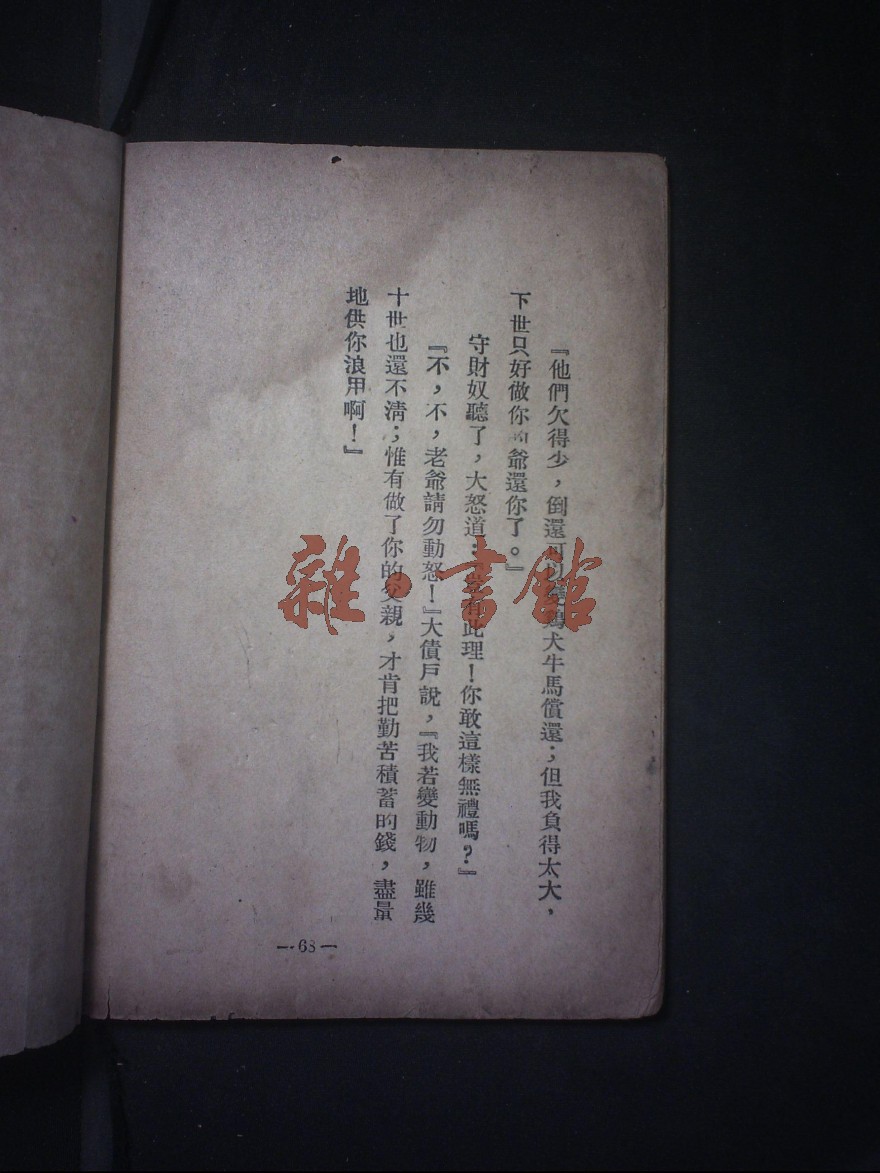 『他們欠得少，倒還可以變鷄犬牛馬償還；但我負得太大，
下世只好做你的爺還你了。』
守財奴聽了，大怒道：『豈有此理！你敢這樣無禮嗎？』
『不，不，老爺請勿動怒！』大債戶說，『我若變動物，雖幾
十世也還不清；惟有做了你的父親，才肯把勤苦積蓄的錢，盡量
地供你浪用啊！』
—68—
雜·書館